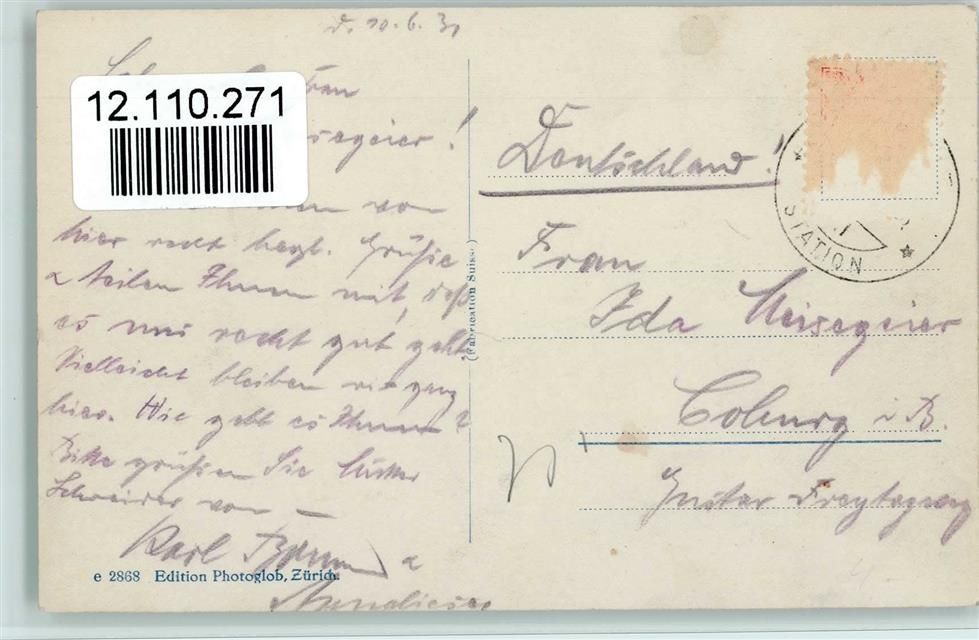 d. 10.6.31
Frau
12.110.271
segeier!
von
hier recht herzl. Grüße
u teilen Ihnen mit, daß
es uns recht gut geht.
Vielleicht bleiben wir ganz
hier. Wie geht es Ihnen?
Bitte grüßen Sie Mutter
Schneider von –
Karl u
Annaliese
e 2868 Edition Photoglob, Zürich.
(Fabrication Suisse)
Deutschland!
Frau
Ida Meisegeier
Coburg i B.
Gustav Freytagweg
STATION